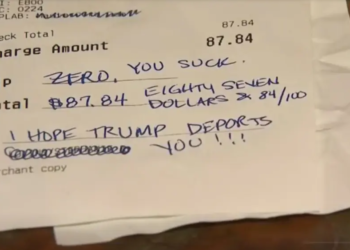 I: E800
C: 0224
PLAB:
eck Total 87.84
harge Amount 87.84
P ZERO, YOU SUCK.
otal $87.84 EIGHTY SEVEN
DOLLARS & 84/100
I HOPE TRUMP DEPORTS
YOU!!!
rchant copy